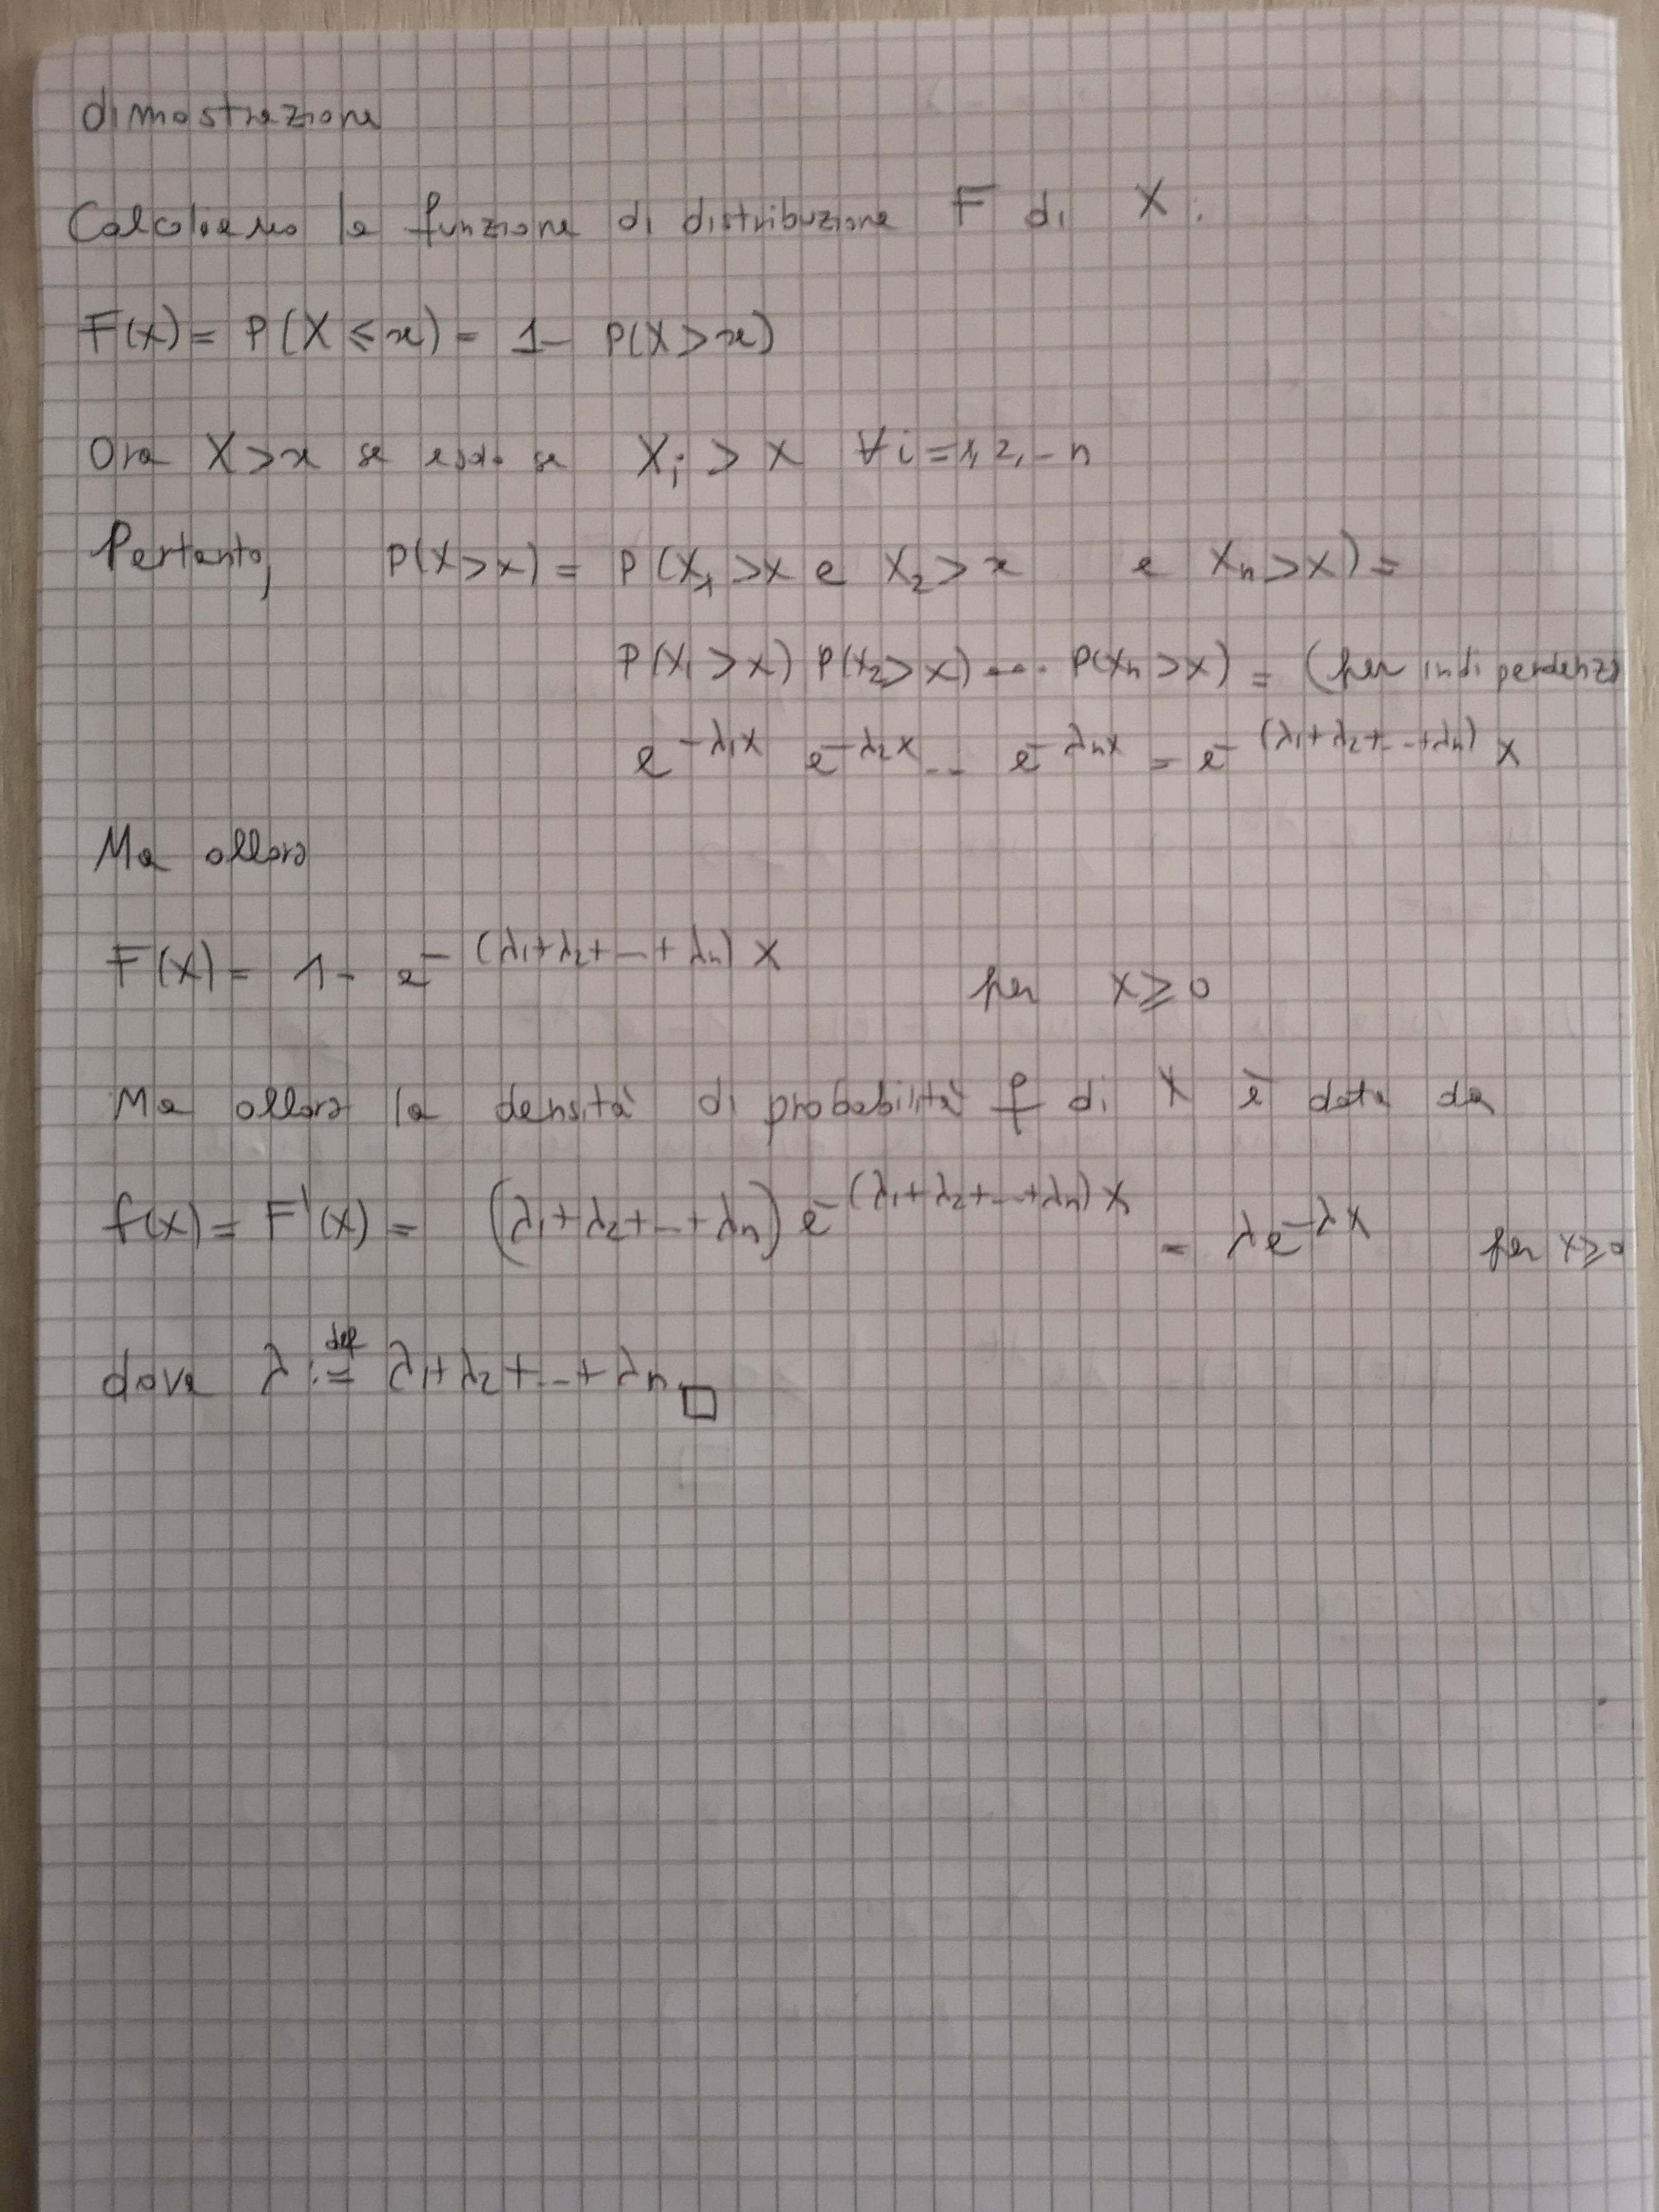 dimostrazione
Calcoliamo la funzione di distribuzione F di X.
F(x) = P(X ≤ x) = 1 - P(X > x)
Ora X > x se e solo se Xi > x ∀i = 1, 2, - n
Pertanto, P(X > x) = P(X1 > x e X2 > x e Xn > x) =
P(X1 > x) P(X2 > x) ... P(Xn > x) = (per indipendenza
e^-λ1x e^-λ2x -- e^-λnx = e^-(λ1+λ2+--+λn)x
Ma allora
F(x) = 1 - e^-(λ1+λ2+--+λn)x per x ≥ 0
Ma allora la densità di probabilità f di X è data da
f(x) = F'(x) = (λ1+λ2+--+λn) e^-(λ1+λ2+--+λn)x = λe^-λx per x ≥ 0
dove λ :=def λ1+λ2+--+λn. □